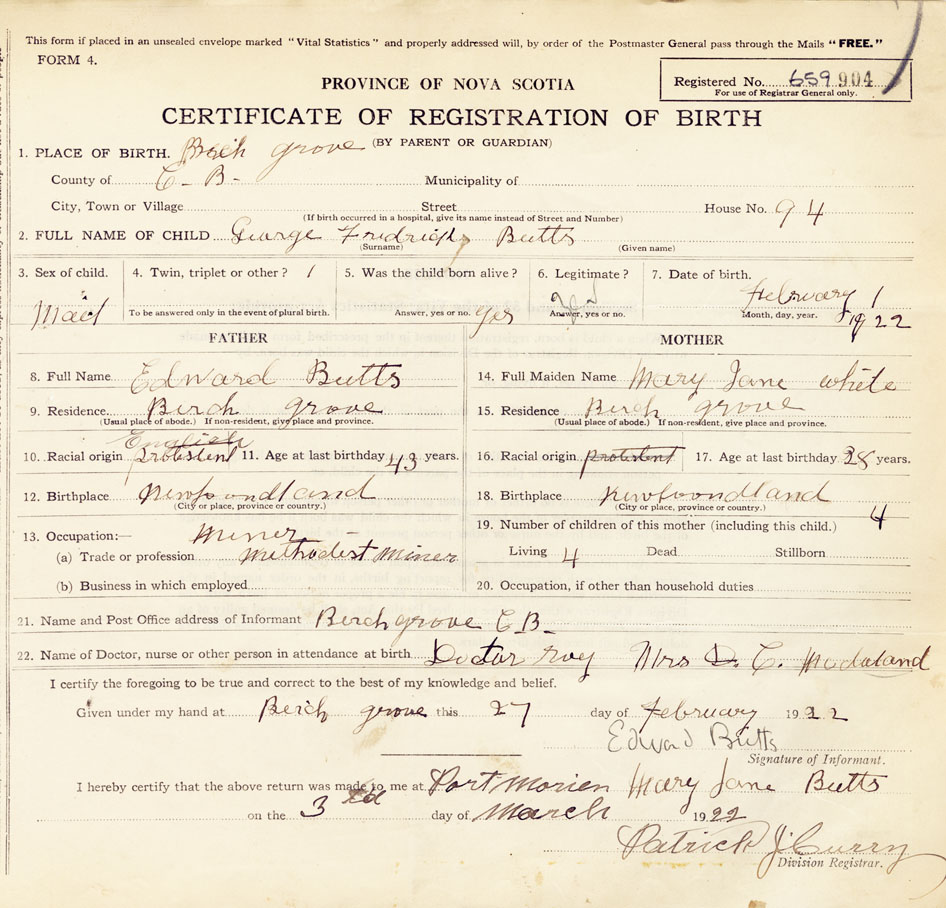 This form if placed in an unsealed envelope marked "Vital Statistics" and properly addressed will, by order of the Postmaster General pass through the Mails "FREE."
FORM 4.
PROVINCE OF NOVA SCOTIA
Registered No. 659 904
For use of Registrar General only.
CERTIFICATE OF REGISTRATION OF BIRTH
(BY PARENT OR GUARDIAN)
1. PLACE OF BIRTH. Birch grove
County of C- B- Municipality of
City, Town or Village Street House No. 94
(If birth occurred in a hospital, give its name instead of Street and Number)
2. FULL NAME OF CHILD George Butts
(Surname) (Given name)
3. Sex of child. 4. Twin, triplet or other? 1 5. Was the child born alive? 6. Legitimate? 7. Date of birth.
Mael To be answered only in the event of plural birth. Answer, yes or no. yes Answer, yes or no. February 1
Month, day, year. 1922
FATHER MOTHER
8. Full Name Edward Butts 14. Full Maiden Name Mary Jane white
9. Residence Birch grove 15. Residence Birch grove
(Usual place of abode.) If non-resident, give place and province. (Usual place of abode.) If non-resident, give place and province.
English
10. Racial origin protestent 11. Age at last birthday 43 years. 16. Racial origin protestent 17. Age at last birthday 28 years.
12. Birthplace Newfoondland 18. Birthplace Newfoondland
(City or place, province or country.) (City or place, province or country.)
13. Occupation:— Miner 19. Number of children of this mother (including this child.) 4
(a) Trade or profession Methodist Miner Living 4 Dead Stillborn
(b) Business in which employed 20. Occupation, if other than household duties
21. Name and Post Office address of Informant Birch grove C B-
22. Name of Doctor, nurse or other person in attendance at birth Doctor Mrs D. C.
I certify the foregoing to be true and correct to the best of my knowledge and belief.
Given under my hand at Birch grove this 27 day of February 1922
Edward Butts
Signature of Informant.
I hereby certify that the above return was made to me at Port Morien Mary Jane Butts
on the 3 rd day of March 1922
Patrick J. Curry
Division Registrar.